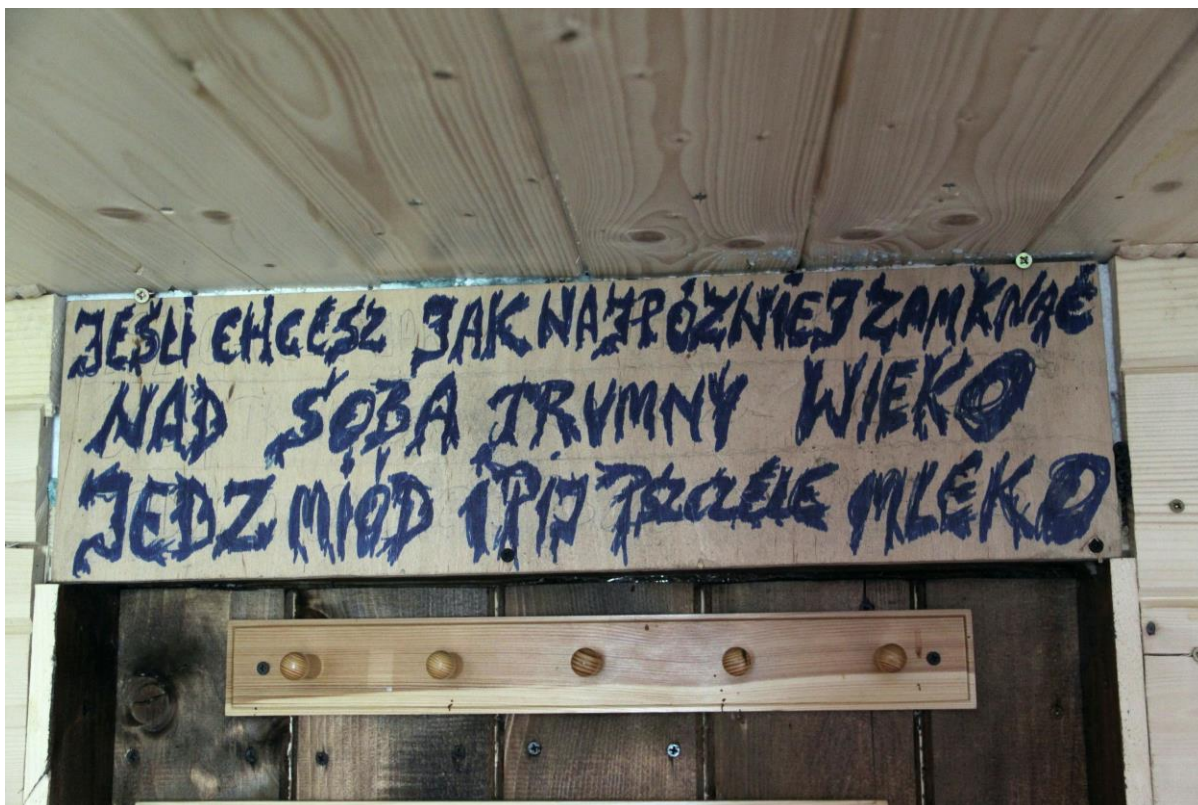 JEŚLI CHCESZ JAK NAJPÓŹNIEJ ZAMKNĄĆ
NAD SOBĄ TRUMNY WIEKO
JEDZ MIÓD I PIJ PSZCZELE MLEKO